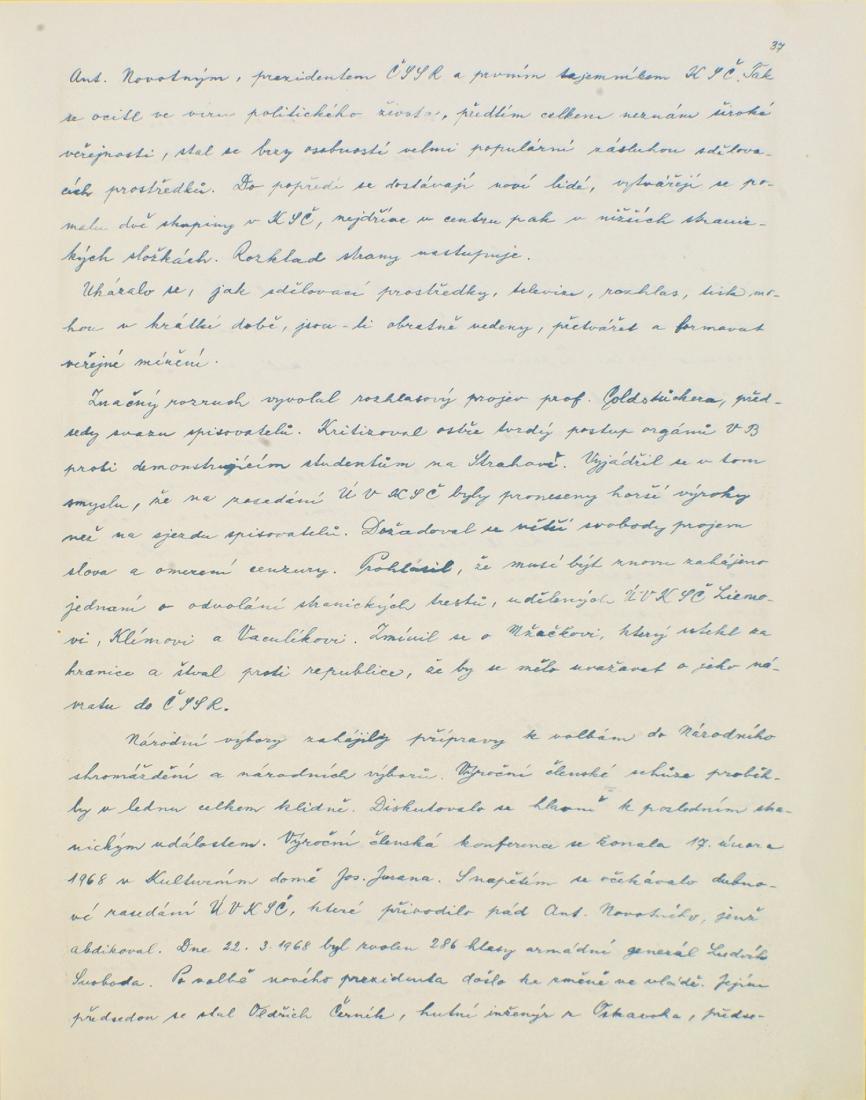 37
Ant. Novotným, prezidentem ČSSR a prvním tajemníkem KSČ. Tak
se ocitl ve víru politického života, předtím celkem neznám široké
veřejnosti, stal se brzy osobností velmi populární zásluhou sdělova-
cích prostředků. Do popředí se dostávají noví lidé, vytvářejí se po-
malu dvě skupiny v KSČ, nejdříve v centru pak v nižších stranic-
kých složkách. Rozklad strany nastupuje.
Ukázalo se, jak sdělovací prostředky, televize, rozhlas, tisk mo-
hou v krátké době, jsou-li obratně vedeny, přetvářet a formovat
veřejné mínění.
Značný rozruch vyvolal rozhlasový projev prof. Goldstückera, před-
sedy svazu spisovatelů. Kritizoval ostře tvrdý postup orgánů VB
proti demonstrujícím studentům na Strahově. Vyjádřil se v tom
smyslu, že na zasedání ÚVKSČ byly proneseny horší výroky
než na sjezdu spisovatelů. Dožadoval se větší svobody projevu
slova a omezení cenzury. Prohlásil, že musí být znovu zahájeno
jednaní o odvolání stranických trestů, udělených ÚVKSČ Liemo-
vi, Klímovi a Vaculíkovi. Zmínil se o Mňačkovi, který utekl za
hranice a štval proti republice, že by se mělo uvažovat o jeho ná-
vratu do ČSSR.
Národní výbory zahájily přípravy k volbám do Národního
shromáždění a národních výborů. Výroční členské schůze proběh-
ly v lednu celkem klidně. Diskutovalo se hlavně k posledním stra-
nickým událostem. Výroční členská konference se konala 17. února
1968 v Kulturním domě Jos. Jurana. S napětím se očekávalo dubno-
vé zasedání ÚVKSČ, které přivodilo pád Ant. Novotného, jenž
abdikoval. Dne 22. 3. 1968 byl zvolen 286 hlasy armádní generál Ludvík
Svoboda. Po volbě nového prezidenta došlo ke změně ve vládě. Jejím
předsedou se stal Oldřich Černík, hutní inženýr z Ostravska, předse-